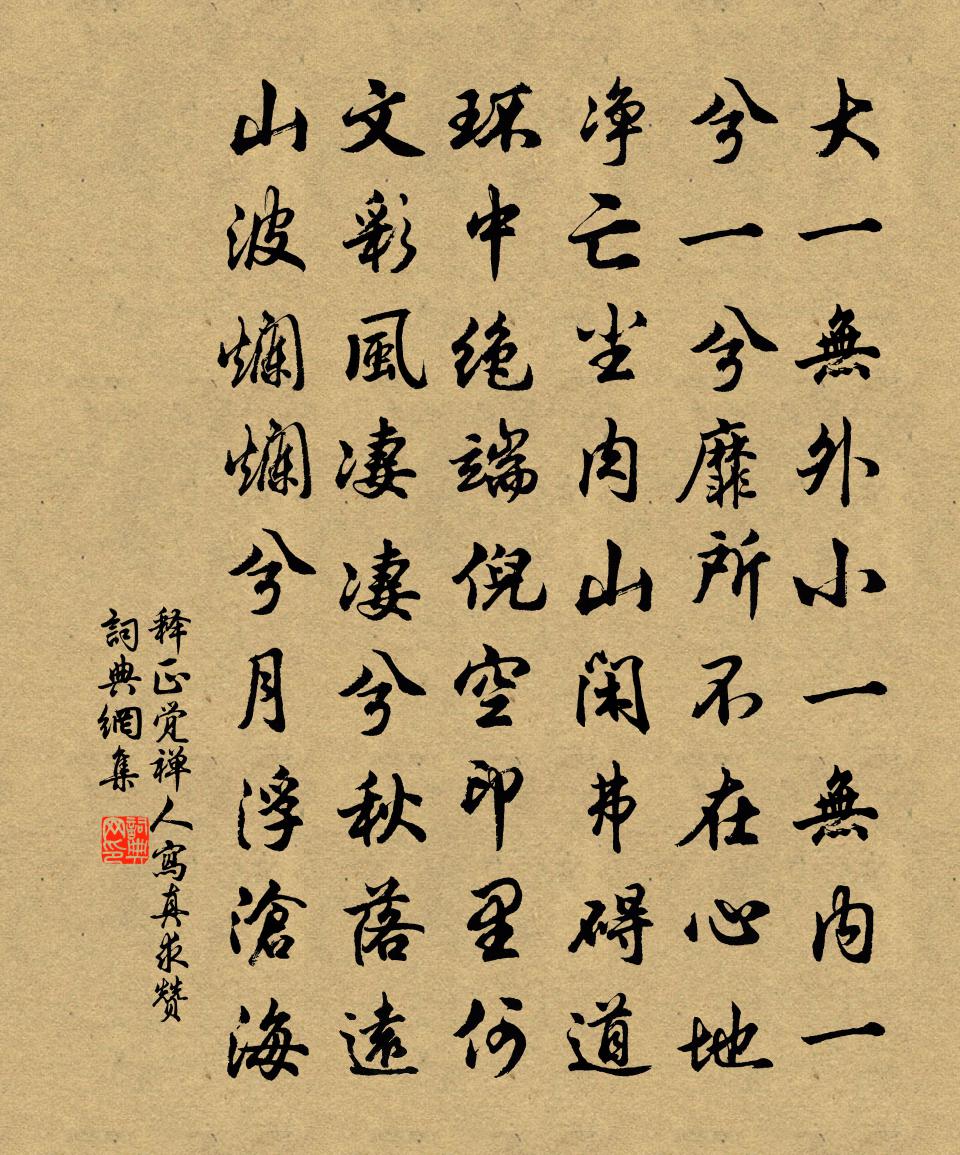 大一無外小一無内一
兮一兮靡所不在心地
净亡尘肉山闲弗碍道
环中绝端倪空印里何
文彩風凄凄兮秋落遠
山波爛爛兮月浮滄海
释正觉禅人寫真求赞
詞典網集
詞典網印